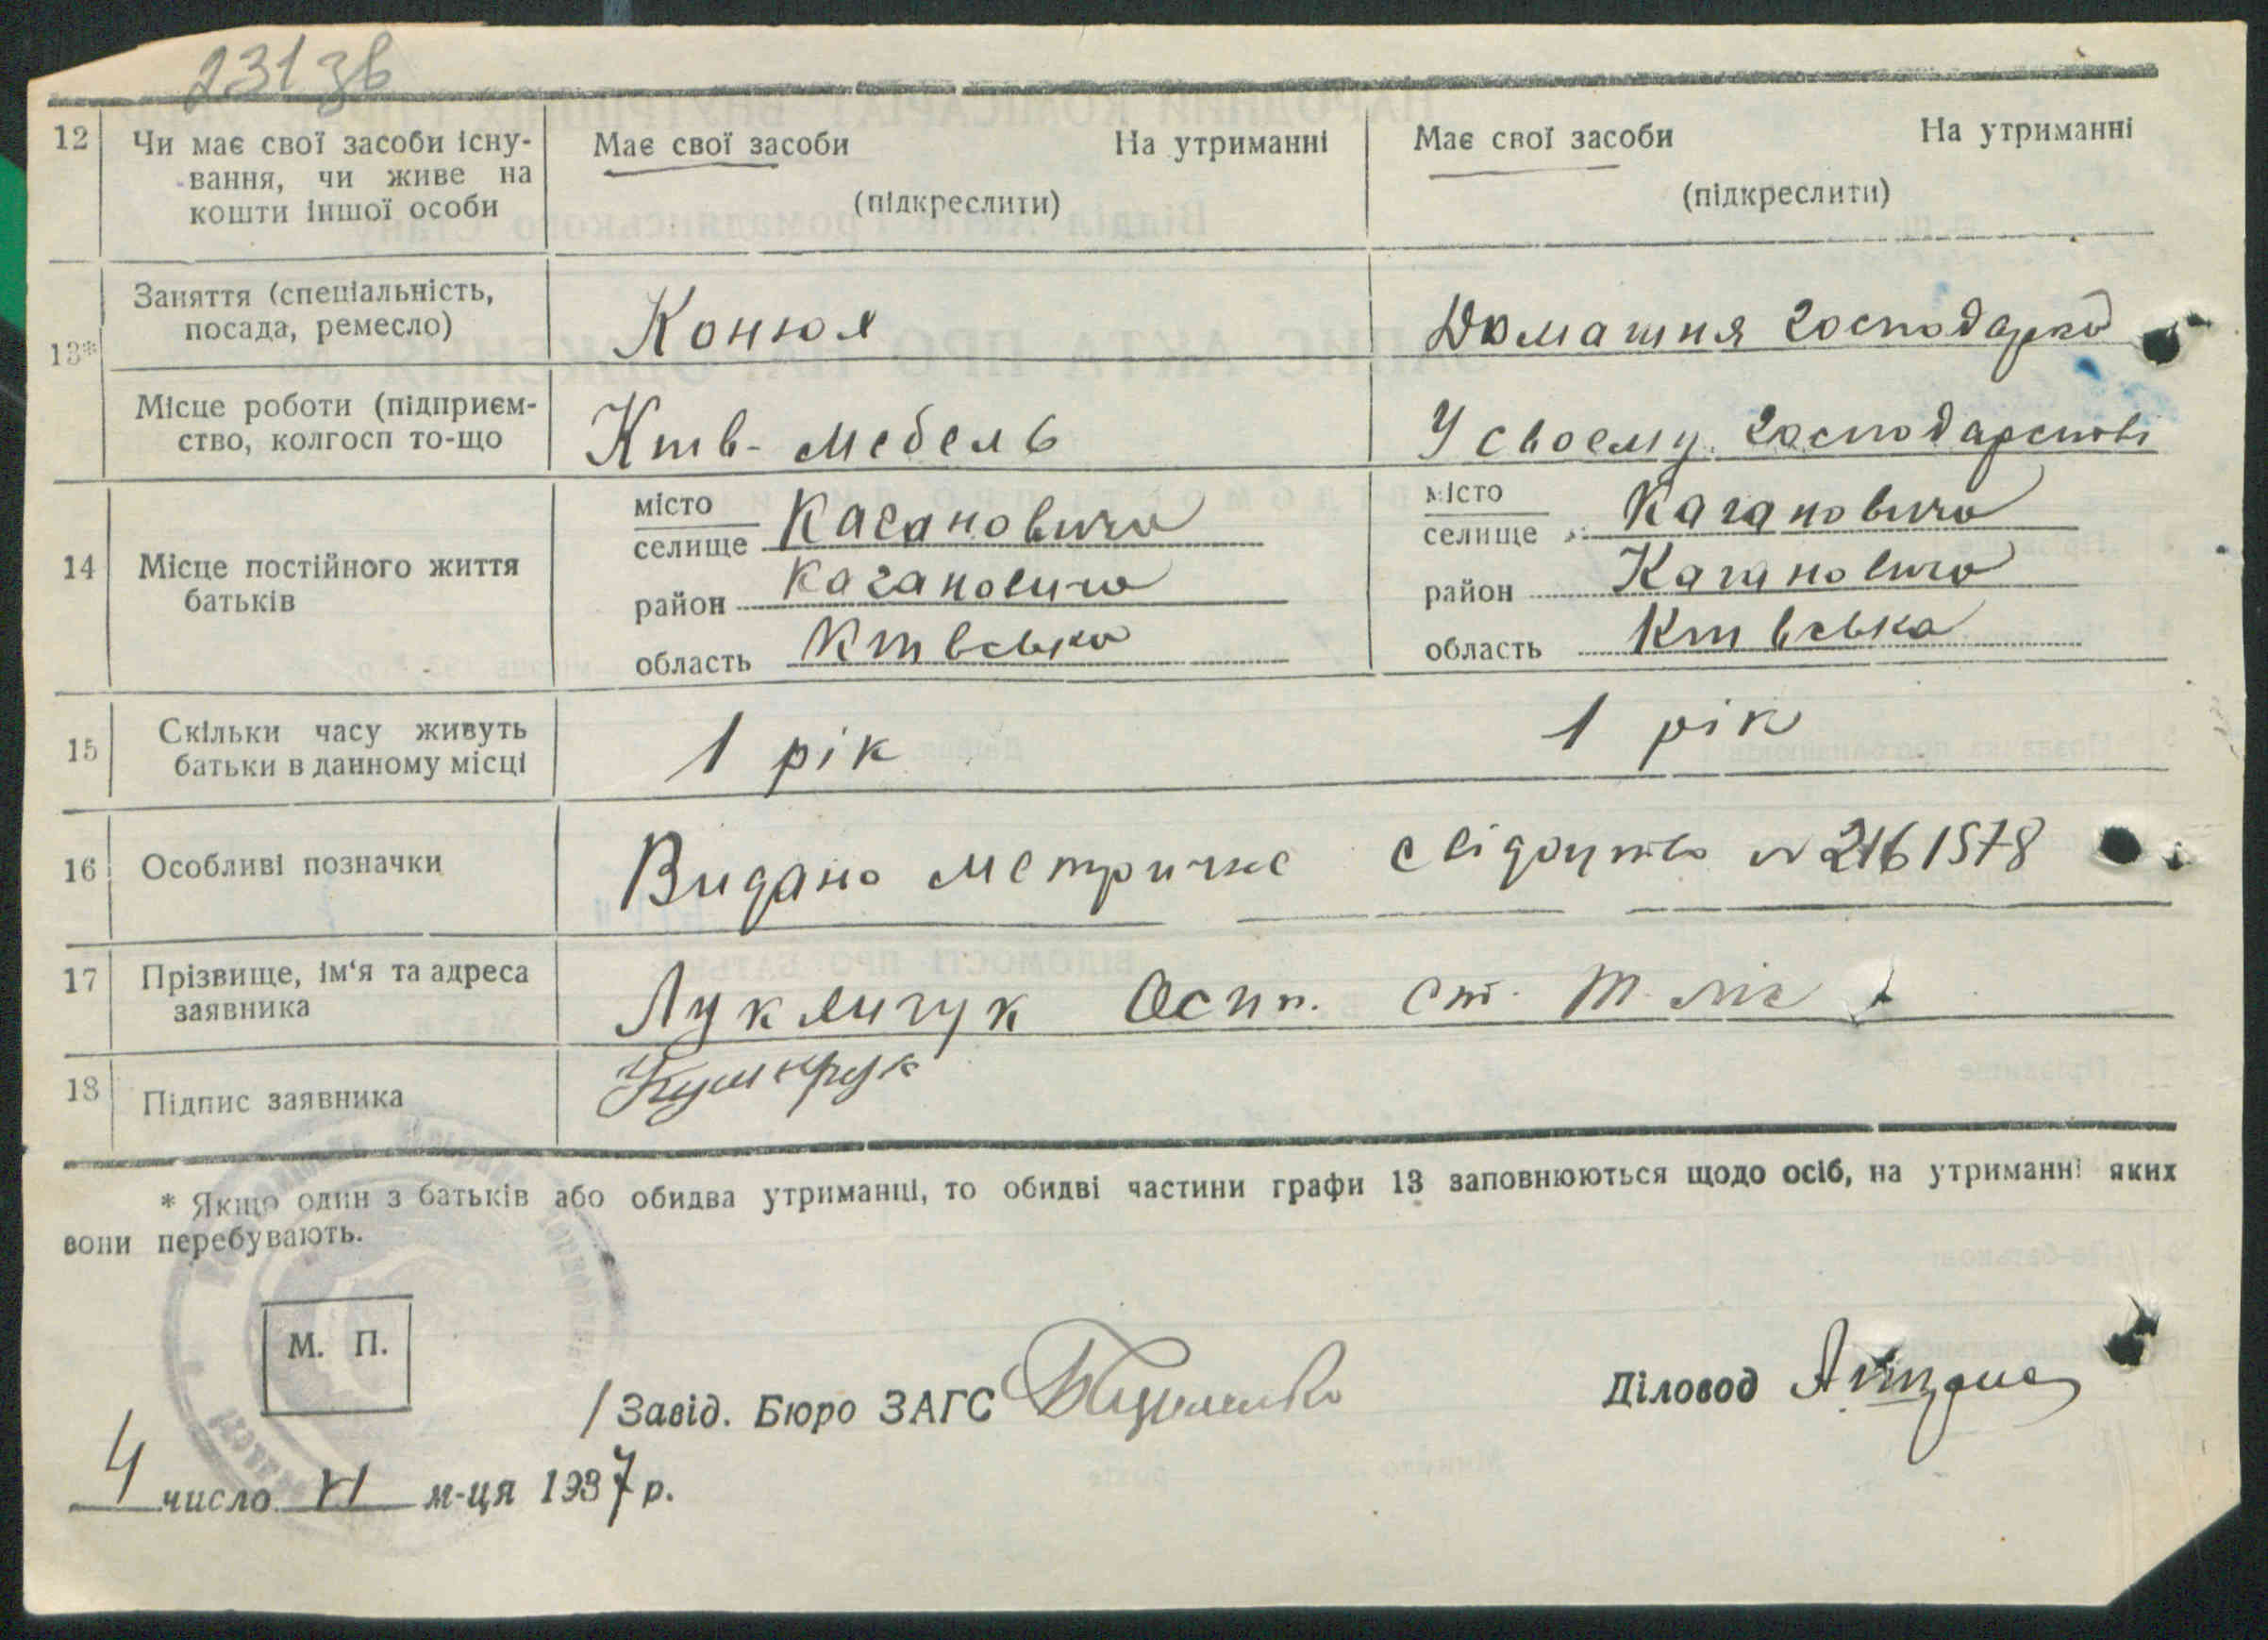 231 зв
12 Чи має свої засоби існу-
вання, чи живе на
кошти іншої особи
Має свої засоби На утриманні
(підкреслити)
Має свої засоби На утриманні
(підкреслити)
13*
Заняття (спеціальність,
посада, ремесло)
Конюх
Домашня господарка
Місце роботи (підприєм-
ство, колгосп то-що
Київ-мебель
У своєму господарстві
14 Місце постійного життя
батьків
місто
селище Кагановича
район Кагановича
область Київська
місто
селище Кагановича
район Кагановича
область Київська
15 Скільки часу живуть
батьки в данному місці
1 рік
1 рік
16 Особливі позначки
Видано метричне свідоцтво № 2161578
17 Прізвище, ім'я та адреса
заявника
Осип. ст.
18 Підпис заявника
* Якщо один з батьків або обидва утриманці, то обидві частини графи 13 заповнюються щодо осіб, на утриманні яких
вони перебувають.
М. П.
Завід. Бюро ЗАГС
Діловод
4 число VI м-ця 1937 р.